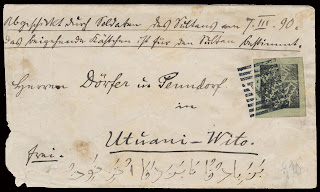 Abgeschickt durch Soldaten des Sultans am 7.III.90.
das beigehende Kästchen ist für den Sultan bestimmt.
Herren Dörfer u. Penndorf.
in
Utuani-Wito.
frei.